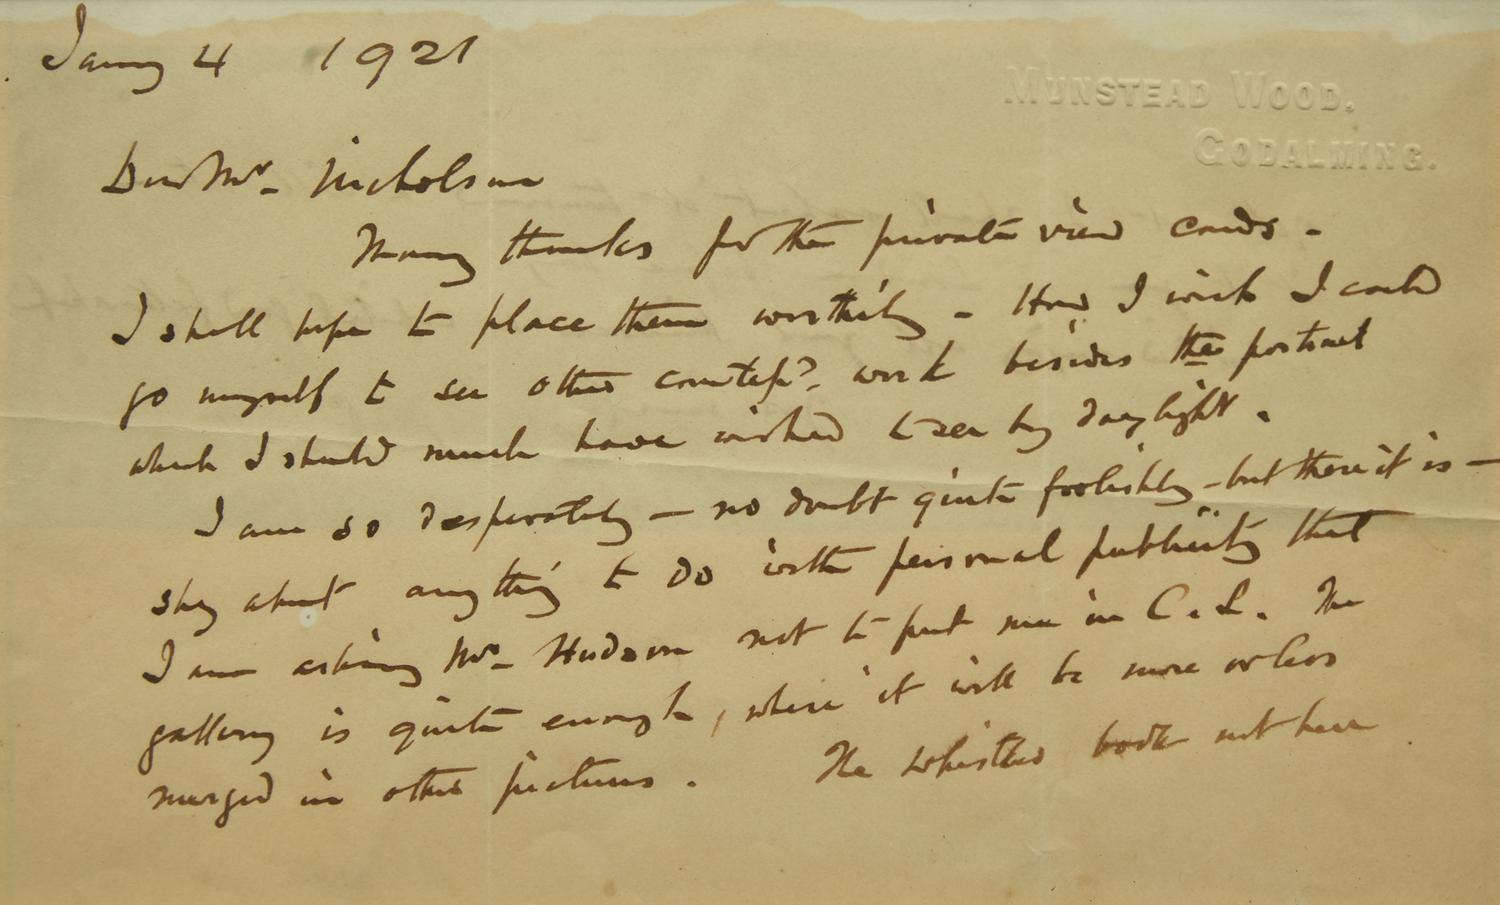 Jany 4 1921
MUNSTEAD WOOD,
GODALMING.
Dear Mr. Nicholson
Many thanks for the private view cards -
I shall hope to place them worthily - How I wish I could
go myself to see other work besides the portrait
which I should much have wished to see by daylight.
I am so desperately — no doubt quite foolishly - but there it is —
shy about anything to do with personal publicity that
I am asking Mr. Hudson not to put me in C. L. The
gallery is quite enough, where it will be more or less
merged in other pictures. The Whistler book not here